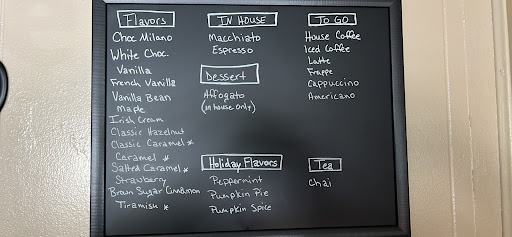 Flavors
Choc Milano
White Choc.
Vanilla
French Vanilla
Vanilla Bean
Maple
Irish Cream
Classic Hazelnut
Classic Caramel *
Caramel *
Salted Caramel *
Strawberry
Brown Sugar Cinnamon
Tiramisu *
IN HOUSE
Macchiato
Espresso
Dessert
Affogato
(in house only)
Holiday Flavors
Peppermint
Pumpkin Pie
Pumpkin Spice
To GO
House Coffee
Iced Coffee
Latte
Frappe
Cappuccino
Americano
Tea
Chai